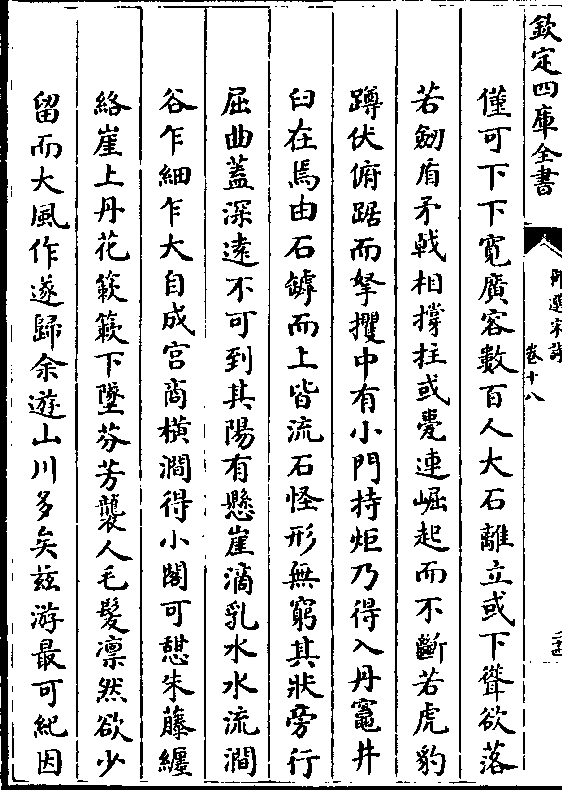 欽定四庫全書
御選宋詩
卷十八
二十四
僅可下下寛廣容數百人大石離立或下聳欲落
若劒盾矛戟相撐拄或疊連崛起而不斷若虎豹
蹲伏俯踞而拏攫中有小門持炬乃得入丹竈井
臼在焉由石罅而上皆流石怪形無窮其狀旁行
屈曲蓋深逺不可到其陽有懸崖滴乳水水流澗
谷乍細乍大自成宫商横澗得小閣可憇朱藤纏
絡崖上丹花簌簌下墜芬芳襲人毛髪凛然欲少
留而大風作遂歸余遊山川多矣兹游最可紀因